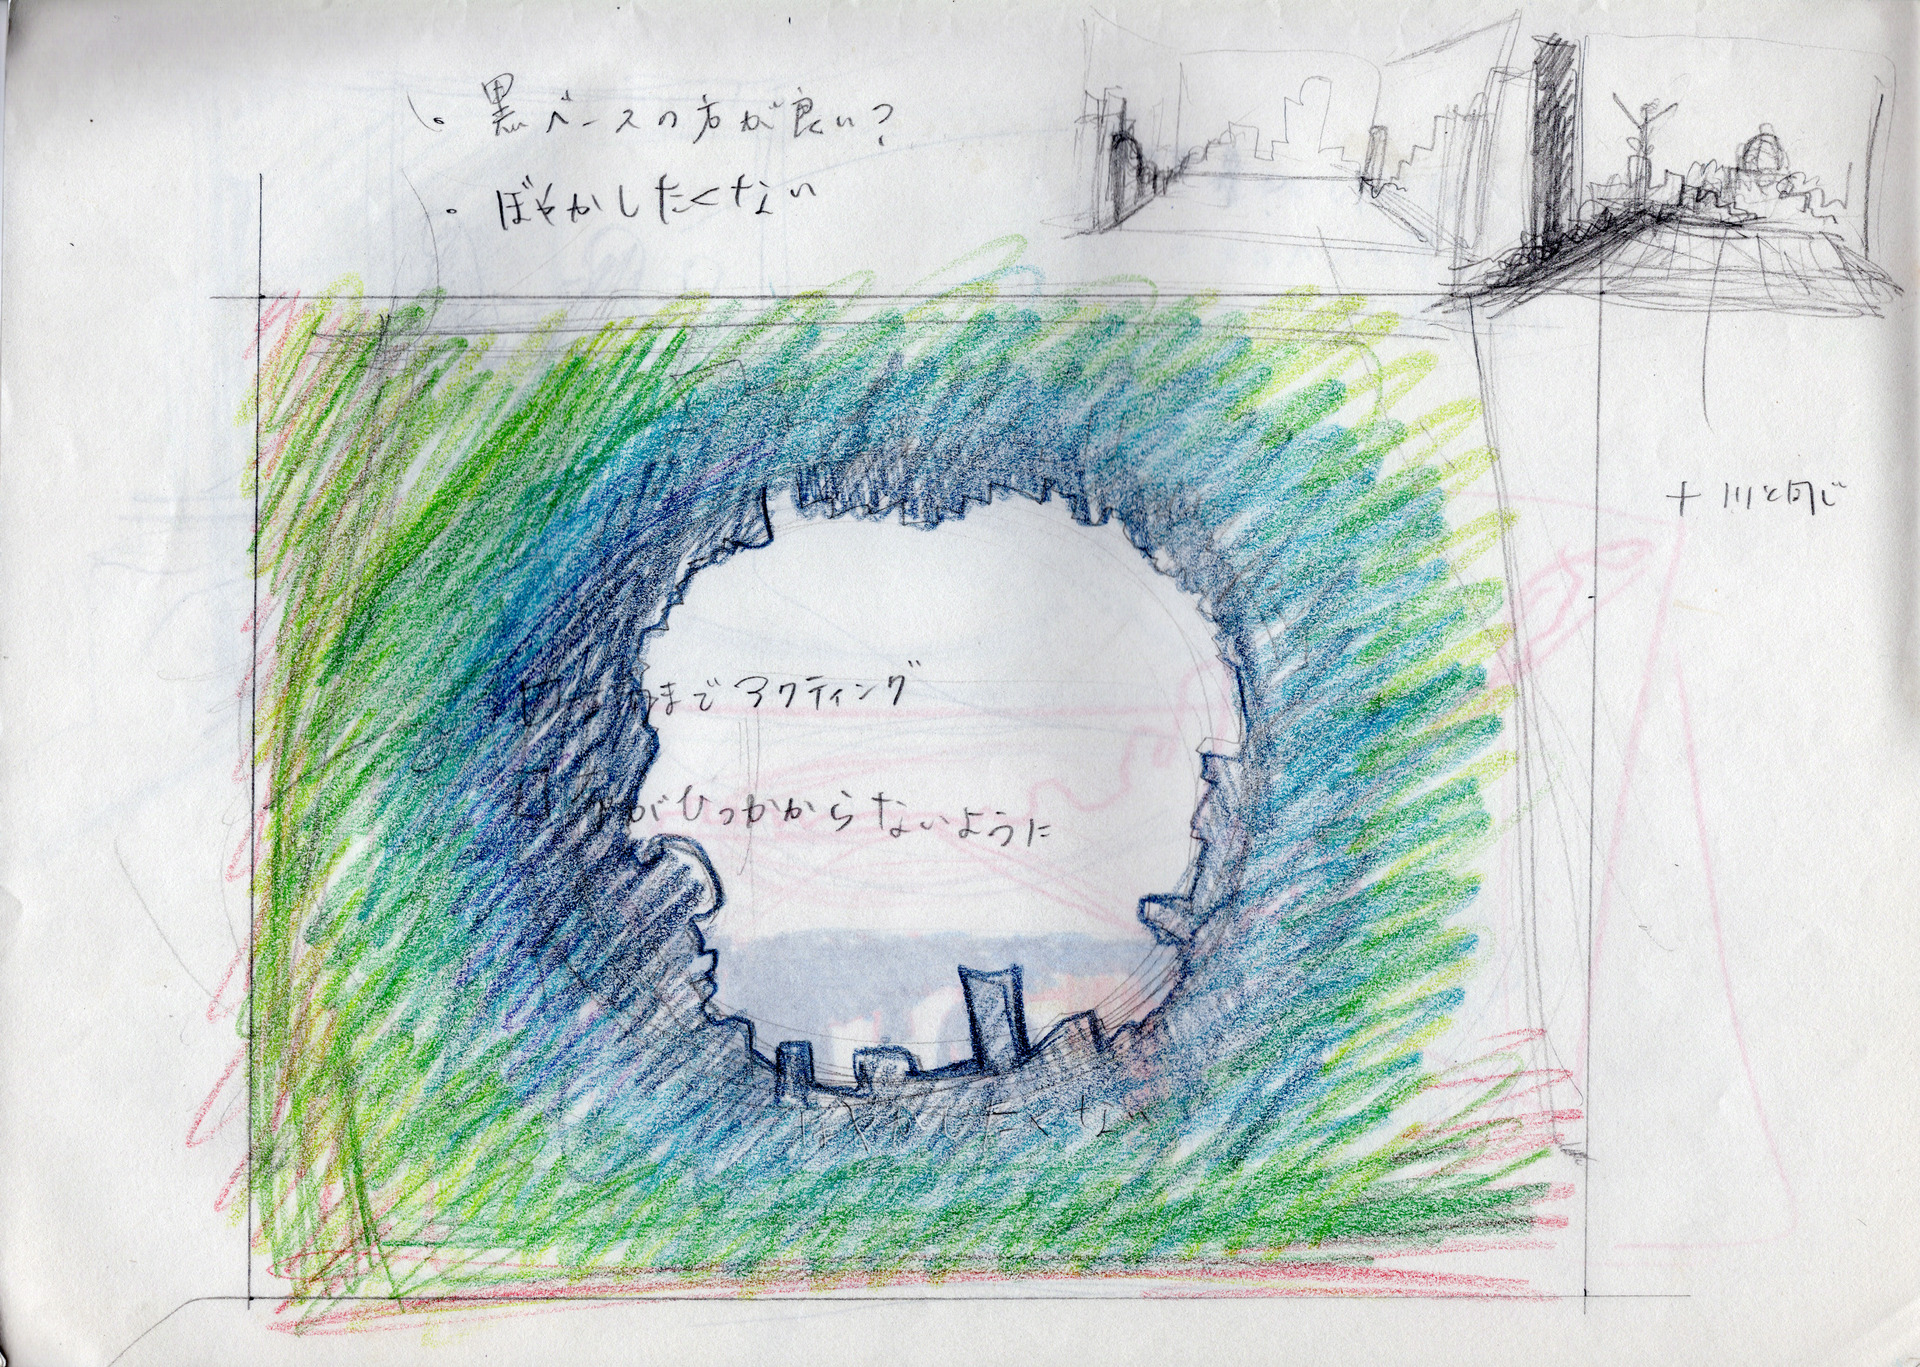 ・黒ベースの方が良い？
・ぼやかしたくない
＋ 川と同じ
まで アクティング
がひっかからないように
ぼやかしたくない